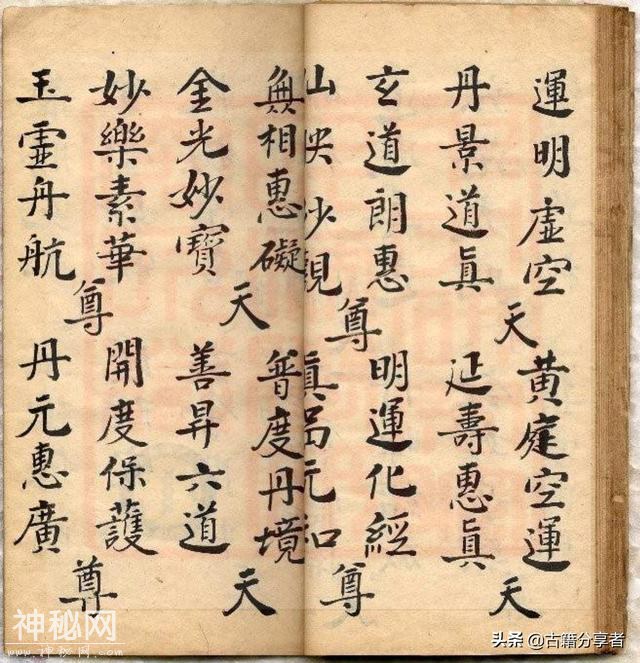 運明虛空 黃庭空運
天 天
丹景道眞 延壽惠眞
玄道朗惠 明運化經
尊 尊
仙妙觀 眞元和
無相惠礙 普度丹境
天 天
金光妙寶 善昇六道
妙樂素華 開度保護
尊 尊
玉靈舟航 丹元惠廣
神秘网
头条 @古籍分享者